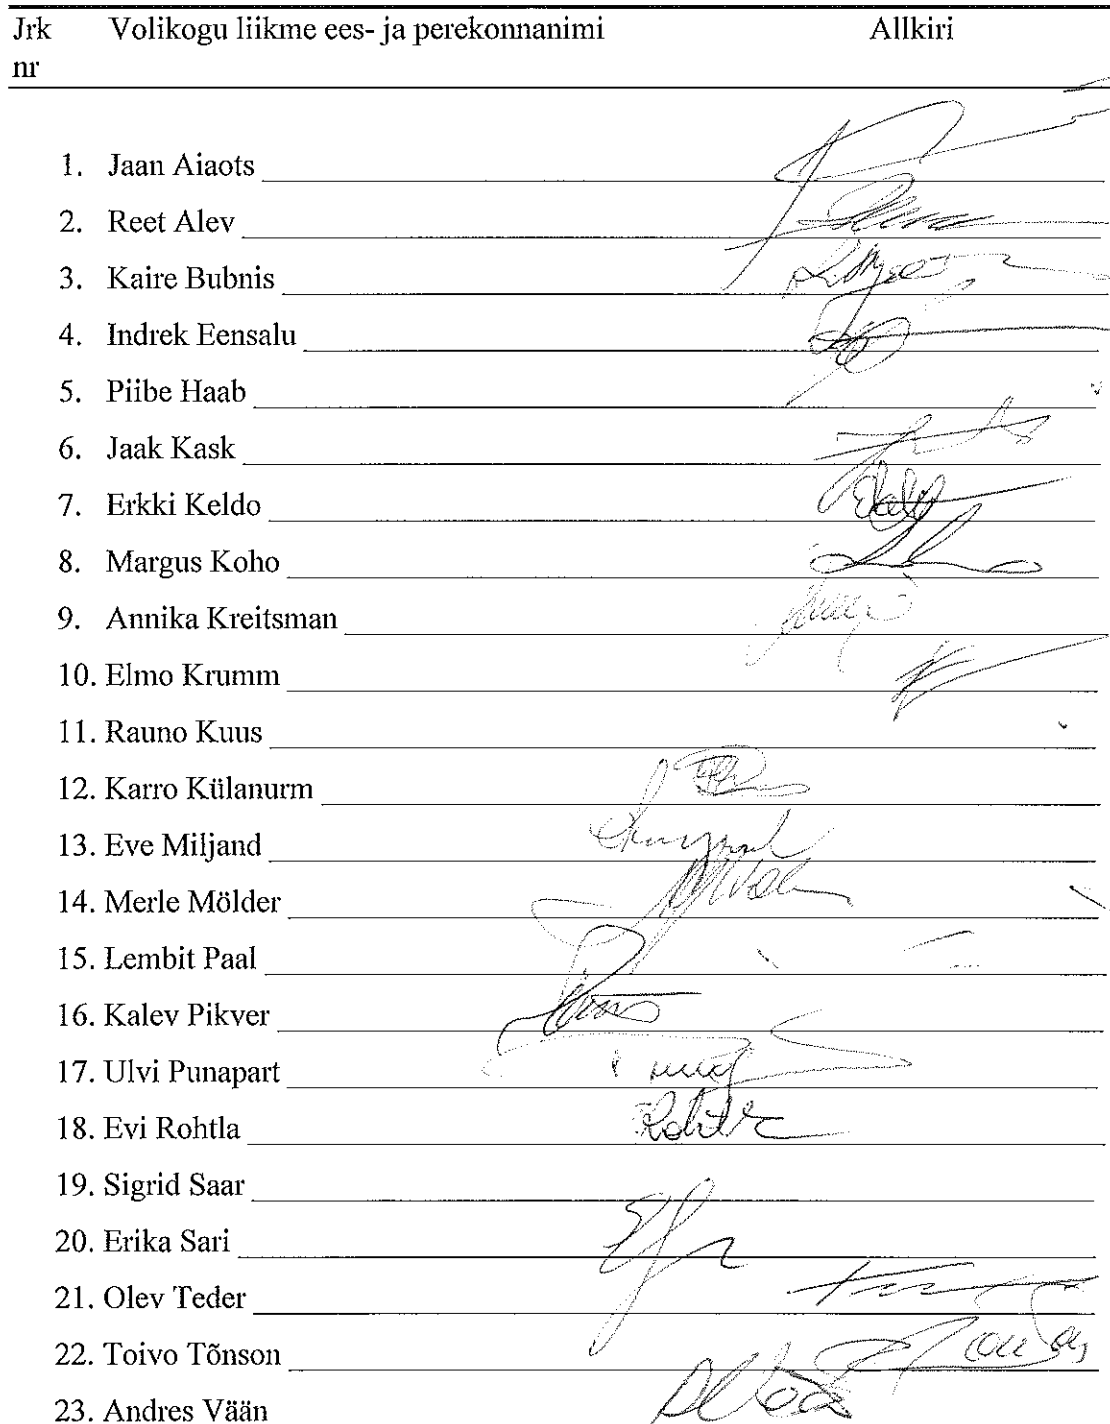 Jrk Volikogu liikme ees- ja perekonnanimi Allkiri
nr
1. Jaan Aiaots
2. Reet Alev
3. Kaire Bubnis
4. Indrek Eensalu
5. Piibe Haab
6. Jaak Kask
7. Erkki Keldo
8. Margus Koho
9. Annika Kreitsman
10. Elmo Krumm
11. Rauno Kuus
12. Karro Külanurm
13. Eve Miljand
14. Merle Mölder
15. Lembit Paal
16. Kalev Pikver
17. Ulvi Punapart
18. Evi Rohtla
19. Sigrid Saar
20. Erika Sari
21. Olev Teder
22. Toivo Tõnson
23. Andres Vään